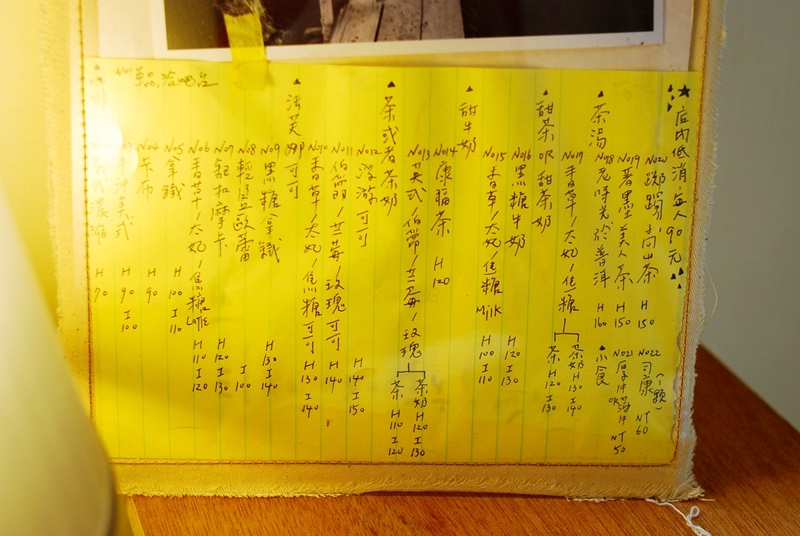 ★店內低消,每人90元
No20 躑躅高山茶 H 150
No19 著墨美人茶 H 150
No18 老時光於普洱 H 160
▲茶湯
No22 司康 (1顆) NT 60
No21 厚片 NT 50
◆小食
▲甜茶 OR 甜茶奶
No17 香草/太妃/焦糖
茶 H 120 I 130
茶奶 H 130 I 140
▲甜牛奶
No16 黑糖牛奶 H 120 I 130
No15 香草/太妃/焦糖 Milk H 100 I 110
▲茶或者茶奶
No14 康福茶 H 120
No13 英式/伯爵/芒莓/玫瑰
茶 H 110 I 120
茶奶 H 120 I 130
▲法芙娜可可
No12 漂游可可 H 140 I 150
No11 伯爵/芒莓/玫瑰可可 H 140
No10 香草/太妃/焦糖可可 H 130 I 140
No9 黑糖拿鐵 H 130 I 140
No8 輕盈歐蕾 I 100
No7 鈕扣摩卡 H 120 I 130
No6 香草/太妃/焦糖 Latte H 110 I 120
No5 拿鐵 H 100 I 110
No4 卡布 H 90
美式 H 90 I 100
濃縮 H 70